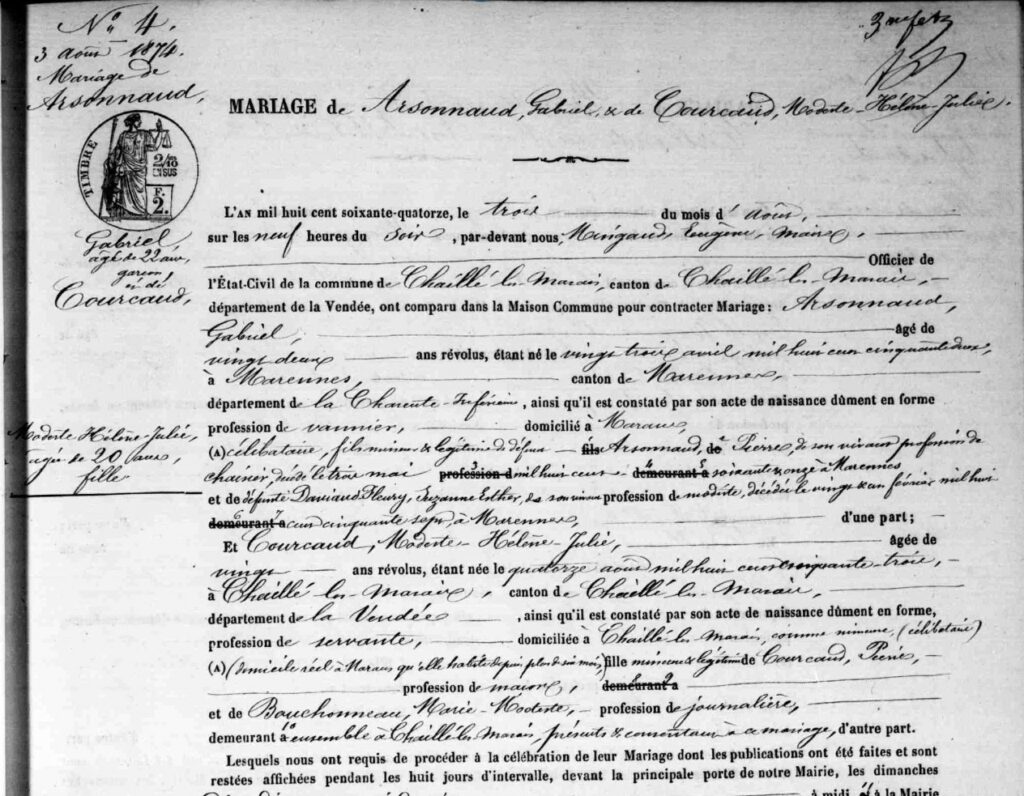 N° 4
3 août 1874.
Mariage de
Arsonnaud,
TIMBRE
2/10
EN SUS
F.
2.
Gabriel,
âgé de 22 ans,
garçon,
et de
Courcaud,
Modeste Hélène-Julie,
âgée de 20 ans,
fille
MARIAGE de Arsonnaud, Gabriel, & de Courcaud, Modeste-Hélène-Julie.
L'AN mil huit cent soixante-quatorze, le trois du mois d'août,
sur les neuf heures du soir, par-devant nous, Mingaud, Eugène, maire,
Officier de
l'État-Civil de la commune de Chaillé les Marais, canton de Chaillé les Marais,
département de la Vendée, ont comparu dans la Maison Commune pour contracter Mariage : Arsonnaud,
Gabriel, âgé de
vingt deux ans révolus, étant né le vingt trois avril mil huit cent cinquante deux,
à Marennes, canton de Marennes,
département de la Charente-Inférieure, ainsi qu'il est constaté par son acte de naissance dûment en forme
profession de vannier, domicilié à Marans,
(A) célibataire, fils mineur & légitime de défunt fils Arsonnaud, de Pierre, de son vivant profession de
décédé le trois mai profession d mil huit cent demeurant à soixante onze à Marennes
et de défunte Daviaud Fleury, Suzanne Esther, de son vivant profession de modiste, décédée le vingt & un février mil huit
demeurant à cent cinquante sept à Marennes, d'une part ;
Et Courcaud, Modeste-Hélène-Julie, âgée de
vingt ans révolus, étant née le quatorze août mil huit cent cinquante-trois,
à Chaillé les Marais, canton de Chaillé les Marais,
département de la Vendée, ainsi qu'il est constaté par son acte de naissance dûment en forme,
profession de servante, domiciliée à Chaillé les Marais, comme mineure, (célibataire)
(A) (domicile réel à Marans qu'elle habite depuis plus de six mois,) fille mineure & légitime de Courcaud, Pierre,
profession de maçon, demeurant à
et de Bouchonneau, Marie-Modeste, profession de journalière,
demeurant ensemble à Chaillé les Marais, présents & consentants à ce mariage, d'autre part.
Lesquels nous ont requis de procéder à la célébration de leur Mariage dont les publications ont été faites et sont
restées affichées pendant les huit jours d'intervalle, devant la principale porte de notre Mairie, les dimanches
à midi, et à la Mairie